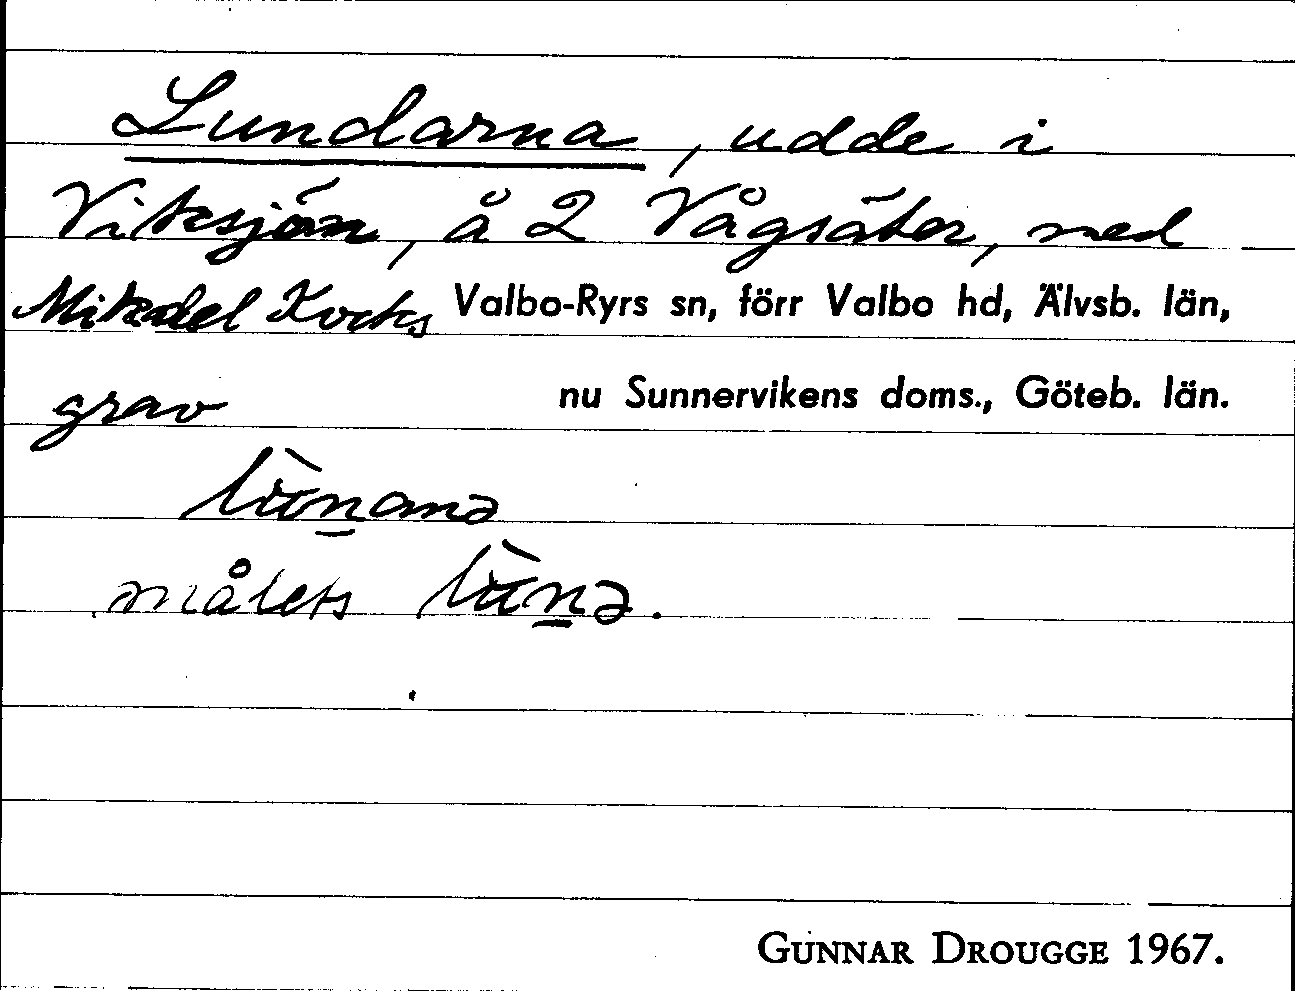 Lundarna, udde i
Viksjön, å 2 Vågsäter, med
Mikael Kocks Valbo-Ryrs sn, förr Valbo hd, Älvsb. län,
grav nu Sunnervikens doms., Göteb. län.
målets
GUNNAR DROUGGE 1967.